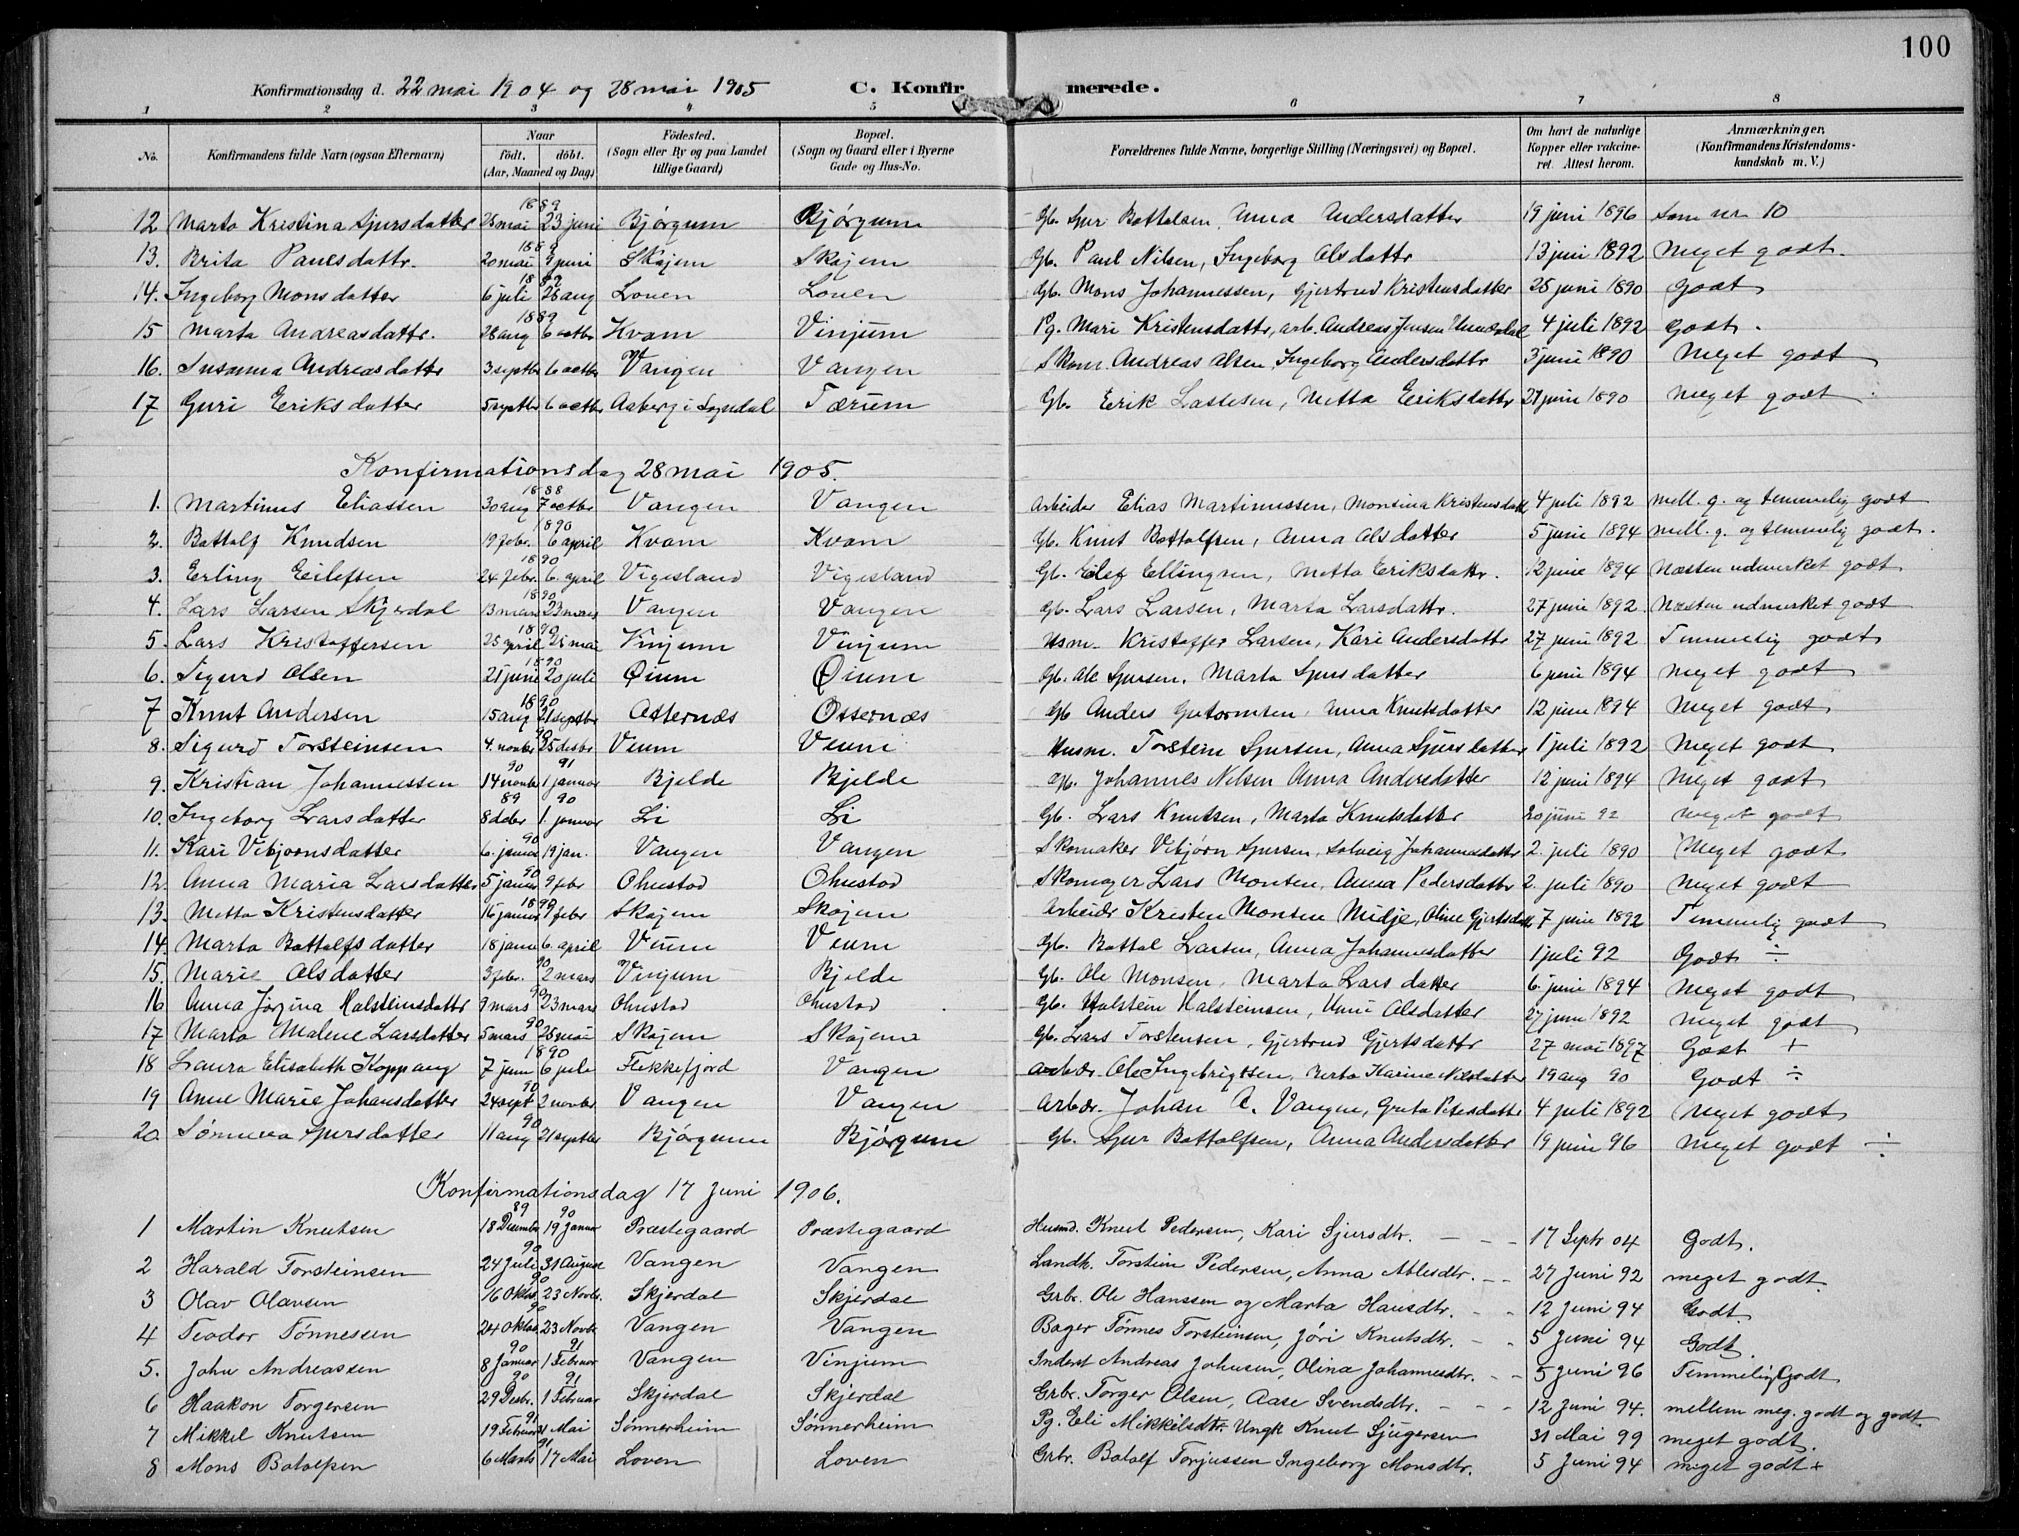 100
Konfirmationsdag d. 22 mai 1904 og 28 mai 1905 C. Konfirmerede.
1 2 3 4 5 6 7 8
No. Konfirmandens fulde Navn (ogsaa Efternavn) Naar födt. döbt. (Aar, Maaned og Dag) Födested. (Sogn eller By og paa Landet tillige Gaard) Bopæl. (Sogn og Gaard eller i Byerne Gade og Hus-No. Forældrenes fulde Navne, borgerlige Stilling (Næringsvei) og Bopæl. Om havt de naturlige Kopper eller vakcineret. Attest herom. Anmærkninger. (Konfirmandens Kristendomskundskab m. V.)
1889
12 Marta Kristina Sjursdatter 28 mai 23 juni Bjørgum Bjørgum Gb. Sjur Battolsen, Anna Andersdatter 19 juni 1896 Som nr. 10
1889
13. Brita Paulsdattr. 20 mai 9 juni Skajem Skajem Gb. Paul Nilsen, Ingeborg Olsdattr 13 juni 1892 Meget godt.
1889
14. Ingeborg Monsdatter 6 juli 26 aug Loven Loven Gb. Mons Johannessen, Gjertrud Kristensdatter 28 juni 1890 godt
1889
15 Marta Andreasdattr. 28 aug 6 octbr Kvam Vinjum Pg. Mari Kristensdattr, arb. Andreas Jensen 4 juli 1892 godt.
16. Susanna Andreasdattr 3 septbr 6 octbr Vangen Vangen Skom. Andreas Olsen, Ingeborg Andersdattr 3 juni 1890 Meget godt
17 Guri Eriksdatter 5 septbr 6 octbr Aaberg i Sogndal Tærum Gb. Erik Lassesen, Metta Eriksdattr 27 juni 1890 Meget godt
Konfirmationsdag 28 mai 1905.
1888
1. Martinus Eliassen 30 aug 7 octbr Vangen Vangen Arbeider Elias Martinussen, Montina Kristensdattr 4 juli 1892 mell. g. og temmelig godt
1890
2. Battolf Knudsen 19 febr. 6 april Kvam Kvam Gb. Knut Battolfsen, Anna Olsdatter 5 juni 1894 mell. g. og temmelig godt.
1890
3. Erling Eilefsen 24 febr. 6. april Vigesland Vigesland Gb. Eilef Ellingsen, Metta Eriksdattr. 12 juni 1894 Næsten udmerket godt
1890
4. Lars Larsen Skjerdal 13 mars 23 mars Vangen Vangen Gb. Lars Larsen, Marta Larsdattr. 27 juni 1892 Næsten udmerket godt
1890
5. Lars Kristoffersen 25 april 26 mai Vinjum Vinjum Husm. Kristoffer Larsen, Kari Andersdattr 27 juni 1892 Temmelig godt
1890
6. Sigurd Olsen 21 juni 20 juli Øium Øium Gb. Ole Sjursen, Marta Sjursdatter 6 juni 1894 Meget godt
1890
7 Knut Andersen 15 aug 21 septbr Otternæs Otternæs Gb Anders Gutormsen, Unna Knutsdatter 12 juni 1894 Meget godt
90
8. Sigurd Torsteinsen 4. novbr 25 desbr Veum Veum Husm. Torstein Sjursen, Anna Sjursdatter 1 juli 1892 Meget godt
90 91
9. Kristian Johannessen 14 novbr 1 januar Bjelde Bjelde Gb. Johannes Nelsen Anna Andersdatter 12 juni 1894 Meget godt
89 90
10. Ingeborg Larsdatter 8 decbr 1. januar Li Li Gb. Lars Knutsen, Marta Knutsdatter 20 juni 92 Meget godt
90
11. Kari Vebjørnsdatter 6. januar 19 jan. Vangen Vangen Skomaker Vebjørn Sjursen, Solveig Johannesdatter 2. juli 1890 Meget godt
90
12. Anna Maria Larsdatter 5 januar 9 febr Ohnstad Ohnstad Skomager Lars Monsen, Anna Pedersdattr 2. juli 1890 Meget godt
1890
13. Metta Kristensdatter 16 januar 9 febr Skajem Skajem Arbeidr Kristen Monsen Midje, Oline Gjertsdatt 7 juni 1892 Temmelig godt
14. Marta Battolfsdatter 18 janu 6. april Veum Veum Gb. Battol Larsen, Anna Johannesdatter 1 juli 92 Godt ÷
90
15. Marie Olsdatter 3 febr. 2 mars Vinjum Bjelde Gb. Ole Monsen, Marta Larsdatter 6. juni 1894 Meget godt
90
16 Anna Jørgina Halsteinsdattr 9 mars 23 mars Ohnstad Ohnstad Gb. Halstein Halsteinsen, Unni Olsdatter 27 juni 1892 Meget godt
90
17 Marta Malene Larsdatter 5 mars 26 mai Skajem Skajem Gb. Lars Torstensen, Gjertrud Gjertsdattr 27 mai 1897 Godt +
1890
18 Laura Elisabeth Koppang 7 juni 6 juli Flekkefjord Vangen Arbdr. Ole Ingebrigtsen, Berta Karine Nilsdatter 19 aug 90 Godt ÷
90
19 Anne Marie Johansdatter 24 sept 2 novbr Vangen Vangen Arbdr. Johan A. Vangen, Greta Petersdattr 4 juli 1892 Meget godt
90
20. Sønneva Sjursdatter 11 aug 21 septbr Bjørgum Bjørgum Gb. Sjur Battolfsen, Anna Andersdatter 19 juni 96 Meget godt ÷
Konfirmationsdag 17 Juni 1906.
89 90
1 Martin Knutsen 18 Desembr 19 Januar Præstegaard Præstegaard Husmd. Knut Pedersen, Kari Sjursdtr. 17 Septr 04 Godt.
90
2 Harald Torsteinsen 24 Juli 31 August Vangen Vangen Landh. Torstein Pedersen, Anna Ablesdtr. 27 Juni 92 meget godt.
90
3 Olav Olavsen 16 Oktbr. 23 Novbr. Skjerdal Skjerdal Grbr. Ole Hanssen og Marta Hansdtr. 12 Juni 94 Godt.
90
4 Teodor Tønnesen 24 Oktbr. 23 Novbr Vangen Vangen Bager Tønnes Torsteinsen, Jóri Knutsdtr. 5 Juni 94 Godt.
90 91
5. John Andreassen 8 Januar 1 Februar Vangen Vinjum Inderst Andreas Johnsen, Olina Johannesdtr. 5 Juni 96 Temmelig Godt
90 91
6 Haakon Torgersen 29 Desbr. 1 Februar Skjerdal Skjerdal Grbr. Torger Olsen, Aase Svendsdtr. 12 Juni 94. mellem meg. godt og godt.
91
7 Mikkel Knutsen 19 Februar 31 Mai Sønnerheim Sønnerheim Pg. Eli Mikkelsdtr. Ungk Knut Sjugersen 31 Mai 99 meget godt.
91
8 Mons Botolfsen 6 Marts 17 Mai Loven Loven Grbr. Botolf Torjussen Ingeborg Monsdtr. 5 Juni 94 meget godt +